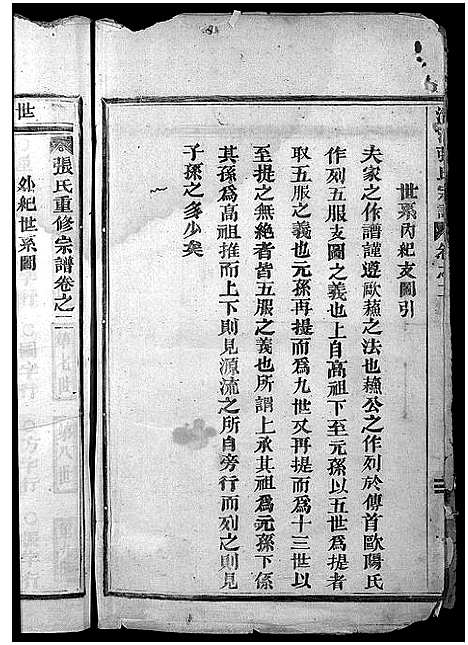 張氏宗譜 卷之二
世系內紀支圖引
夫家之作譜謹遵歐蘓之法也蘓公之作列於傳首歐陽氏
作列五服支圖之義也上自高祖下至元孫以五世爲提者
取五服之義也元孫再提而爲九世又再提而爲十三世以
至提之無絶者皆五服之義也所謂上承其祖爲元孫下係
其孫爲高祖推而上下則見源流之所自旁行而列之則見
子孫之多少矣
張氏重修宗譜卷之二
外紀世系圖
世